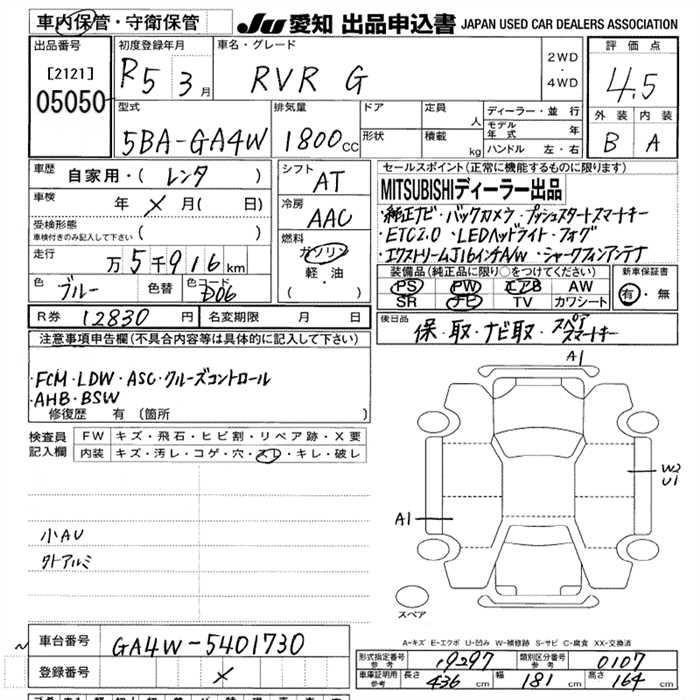 車内保管・守衛保管
JU 愛知 出品申込書 JAPAN USED CAR DEALERS ASSOCIATION
出品番号
[2121]
05050
初度登録年月
R5 3月
車名・グレード
RVR G
2WD
・
4WD
評価点
4.5
外装 内装
B A
型式
5BA-GA4W
排気量
1800cc
ドア
形状
定員 人
積載 kg
ディーラー・並行
モデル年式 年
ハンドル 左・右
車歴
自家用・( レンタ )
車検
年 × 月( 日)
受検形態
車検付きのみ記入して下さい ( )
走行
万 5 千 916 km
色 ブルー 色替 色コード D06
シフト
AT
冷房
AAC
燃料
ガソリン
軽・油
( )
セールスポイント(正常に機能するものに限ります)
MITSUBISHIディーラー出品
・純正ナビ・バックカメラ・プッシュスタートスマートキー
・ETC2.0 ・LEDヘッドライト・フォグ
・エクストリームJ16インチA/W・シャークフィンアンテナ
装備品(純正品に限り○をつけてください)
PS PW エアB AW
SR ナビ TV カワシート
新車保証書
有・無
R券 12830 円 名変期限 月 日
後日品
保・取・ナビ取・スペアスマートキー
注意事項申告欄(不具合内容等は具体的に記入して下さい)
・FCM・LDW・ASC・クルーズコントロール
・AHB・BSW
修復歴 有(箇所 )
検査員記入欄
FW キズ・飛石・ヒビ割・リペア跡・X要
内装 キズ・汚レ・コゲ・穴・スレ・キレ・破レ
小AU
外アルミ
A1
W2
U1
A1
スペア
A-キズ E-エクボ U-凹み W-補修跡 S-サビ C-腐食 XX-交換済
車台番号
GA4W-5401730
登録番号
×
形式指定番号参考 19297 類別区分番号参考 0107
車庫証明用参考 長さ 436 cm 幅 181 cm 高さ 164 cm